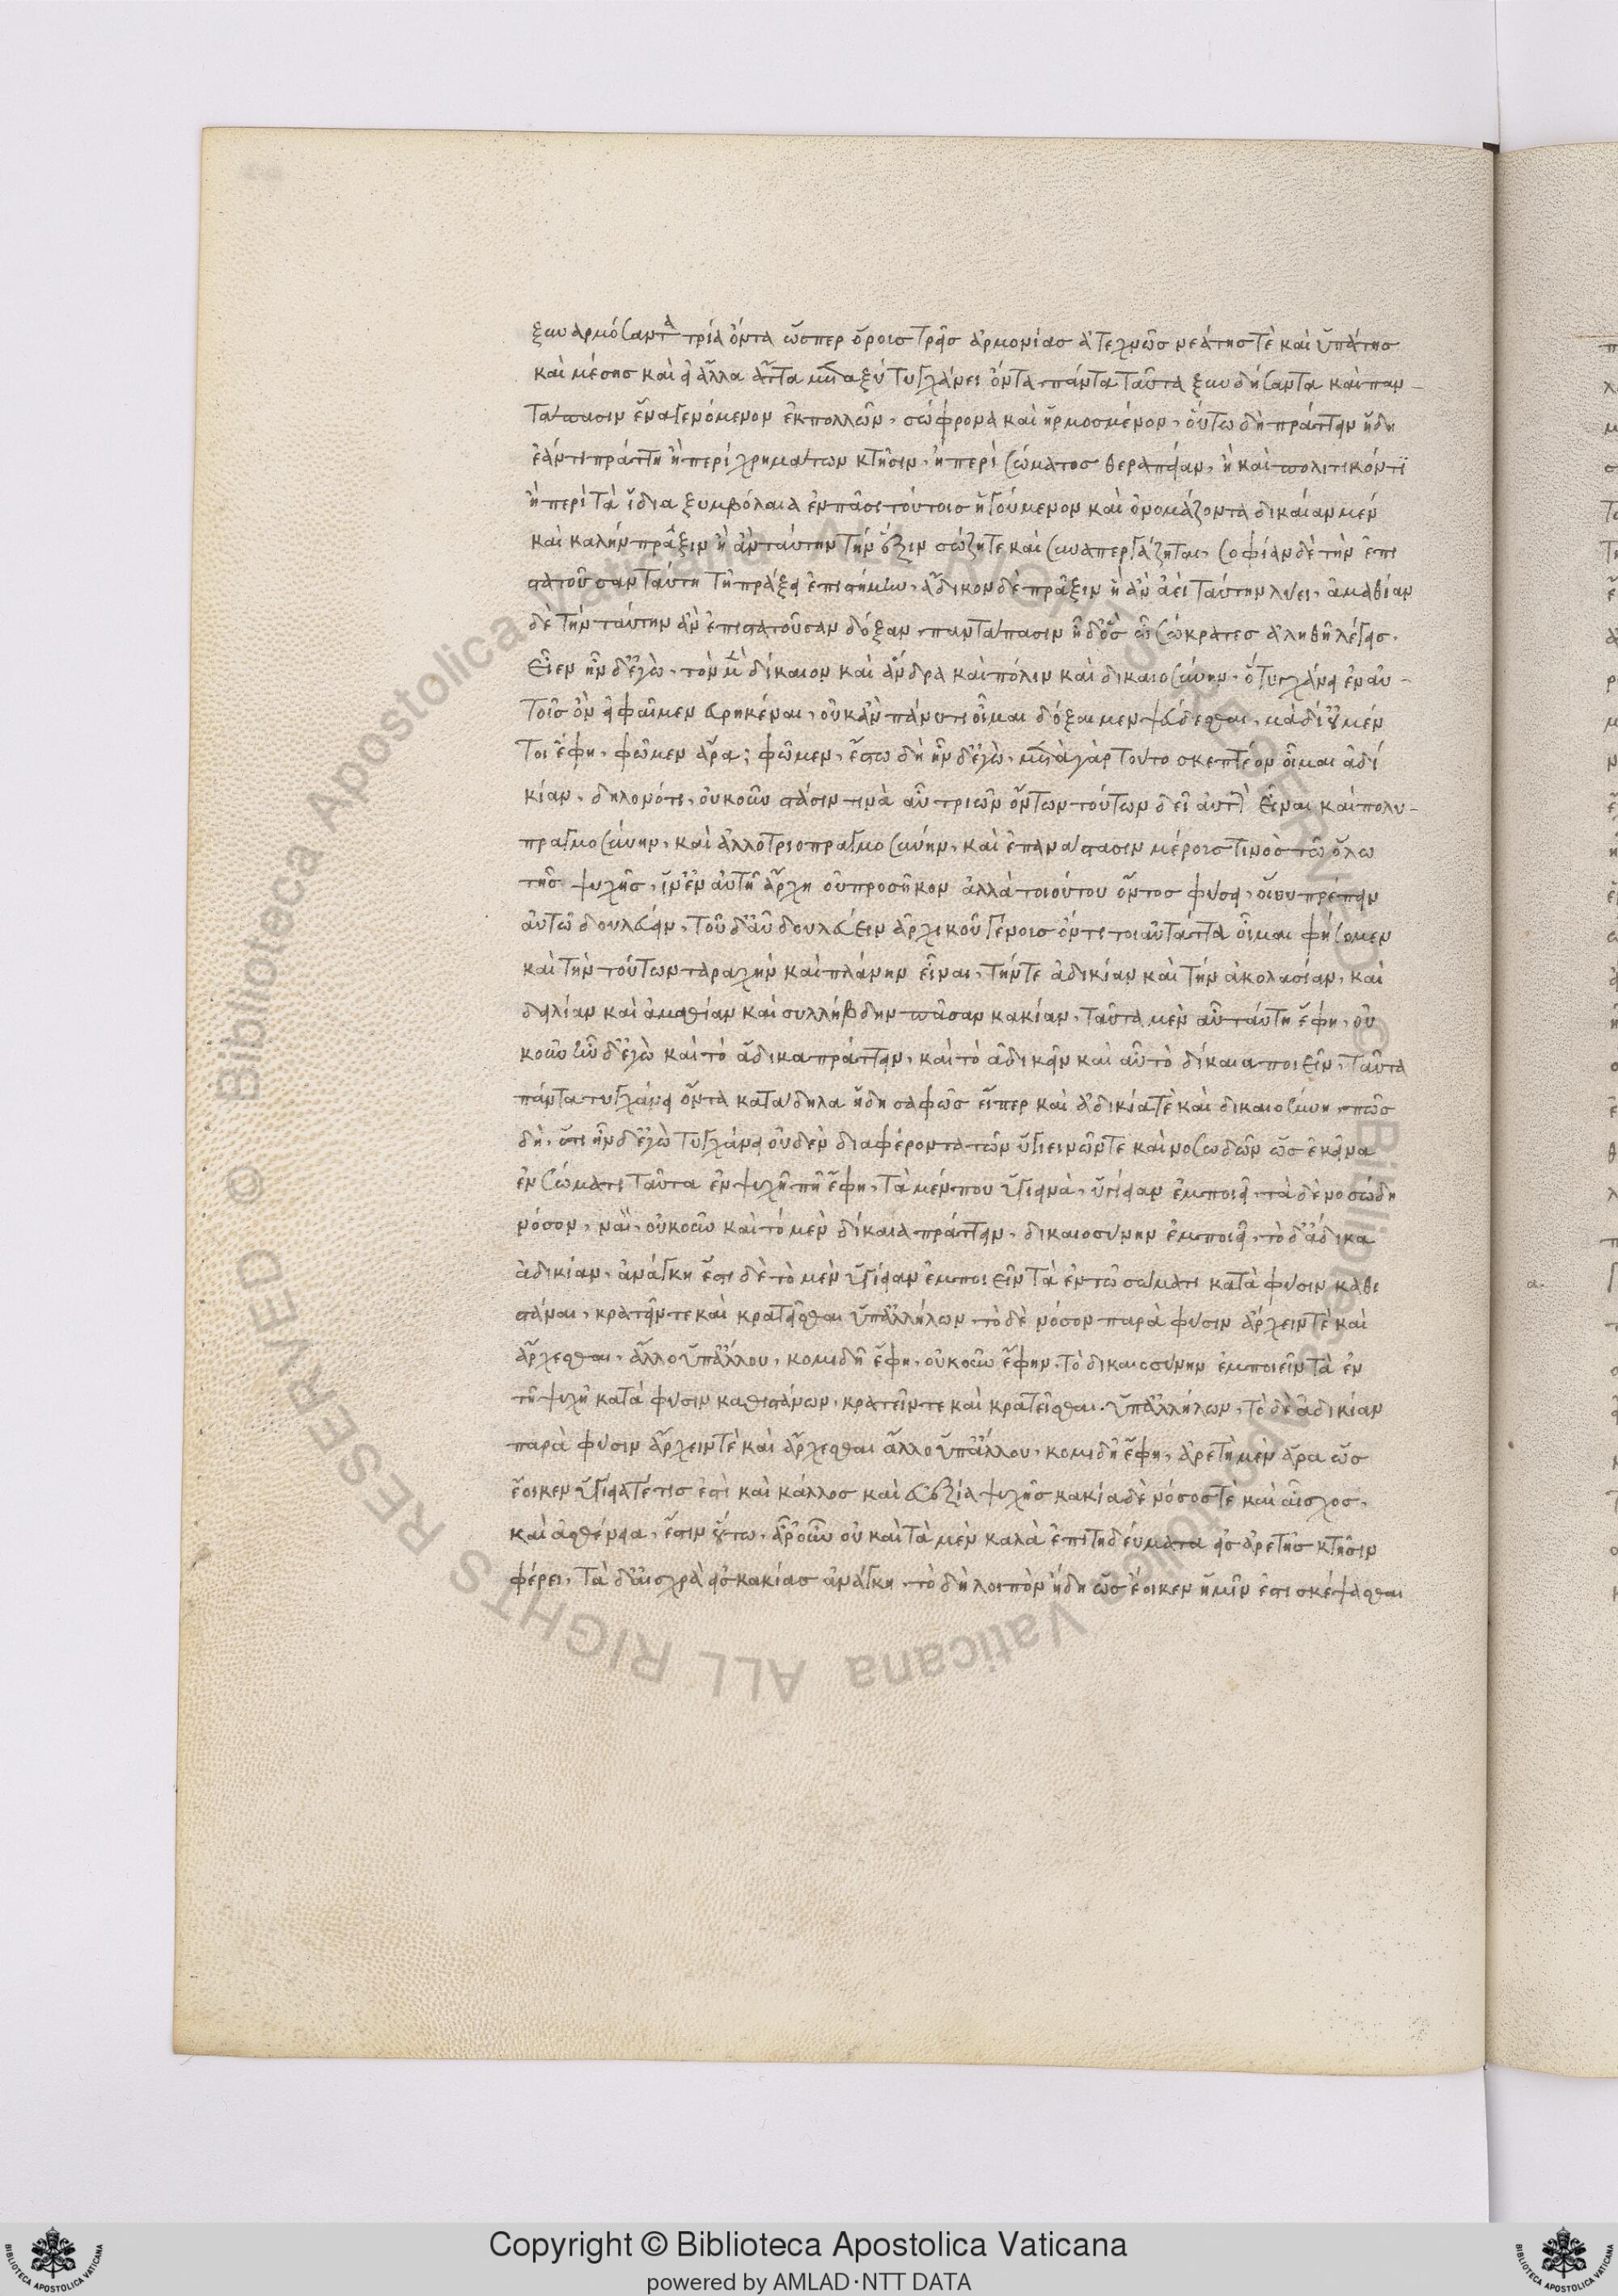 ξυναρμόσαντα τρία ὄντα ὥσπερ ὅρους τρεῖς ἁρμονίας ἀτεχνῶς νεάτης τὲ καὶ ὑπάτης
καὶ μέσης καὶ εἰ ἄλλα ἄττα μεταξὺ τυγχάνει ὄντα πάντα ταῦτα ξυνδήσαντα καὶ παν-
τάπασιν ἕνα γενόμενον ἐκ πολλῶν, σώφρονα καὶ ἡρμοσμένον, οὕτω δὴ πράττειν ἤδη
ἐάν τι πράττη ἢ περὶ χρημάτων κτῆσιν, ἢ περὶ σώματος θεραπείαν, ἢ καὶ πολιτικόν τι
ἢ περὶ τὰ ἴδια ξυμβόλαια ἐν πᾶσι τούτοις ἡγούμενον καὶ ὀνομάζοντα δικαίαν μέν
καὶ καλὴν πρᾶξιν ἣ ἂν ταύτην τὴν ἕξιν σώζη τε καὶ συναπεργάζηται, σοφίαν δὲ τὴν ἐπι
στατοῦσαν ταύτη τῆ πράξει ἐπιστήμην, ἄδικον δὲ πρᾶξιν ἣ ἂν ἀεὶ ταύτην λύει, ἀμαθίαν
δὲ τὴν ταύτην ἂν ἐπιστατοῦσαν δόξαν, παντάπασιν ἦ δ' ὃς ὦ σώκρατες ἀληθῆ λέγεις.
Εἶεν ἦν δ' ἐγὼ, τὸν μὲν δίκαιον καὶ ἄνδρα καὶ πόλιν καὶ δικαιοσύνην, ὃ τυγχάνει ἐν αὐ-
τοῖς ὂν εἰ φαῖμεν εὑρηκέναι, οὐκ ἂν πάνυ τι οἶμαι δόξαιμεν ψεύδεσθαι, μὰ δί οὐ μέν
τοι ἔφη, φῶμεν ἄρα; φῶμεν, ἔστω δὴ ἦν δ' ἐγὼ, μετὰ γὰρ τοῦτο σκεπτέον οἶμαι ἀδι
κίαν, δηλονότι, οὐκοῦν στάσιν τινὰ αὖ τριῶν ὄντων τούτων δεῖ αὐτὴν εἶναι καὶ πολυ-
πραγμοσύνην, καὶ ἀλλοτριοπραγμοσύνην, καὶ ἐπανάστασιν μέρους τινὸς τῶ ὅλω
τῆς ψυχῆς, ἵν' ἐν αὐτῆ ἄρχη οὐ προσῆκον ἀλλὰ τοιούτου ὄντος φύσει, οἵου πρέπειν
αὐτῶ δουλεύειν, τοῦ δ' αὖ δουλεύειν ἀρχικοῦ γένους ὄντι τοιαῦτ' ἄττα οἶμαι φήσομεν
καὶ τὴν τούτων ταραχὴν καὶ πλάνην εἶναι, τήν τε ἀδικίαν καὶ τὴν ἀκολασίαν, καὶ
δειλίαν καὶ ἀμαθίαν καὶ συλλήβδην πᾶσαν κακίαν, ταῦτα μὲν οὖν ταύτη ἔφη, οὐ
κοῦν ἦν δ' ἐγὼ καὶ τὸ ἄδικα πράττειν, καὶ τὸ ἀδικεῖν καὶ αὖ τὸ δίκαια ποιεῖν, ταῦτα
πάντα τυγχάνει ὄντα κατάδηλα ἤδη σαφῶς εἴπερ καὶ ἀδικία τὲ καὶ δικαιοσύνη, πῶς
δή, ὅτι ἦν δ' ἐγὼ τυγχάνει οὐδὲν διαφέροντα τῶν ὑγιεινῶν τε καὶ νοσωδῶν ὡς ἐκεῖνα
ἐν σώματι ταῦτα ἐν ψυχῆ πῆ ἔφη, τὰ μέν που ὑγιεινὰ, ὑγίειαν ἐμποιεῖ, τὰ δὲ νοσώδη
νόσον, ναί, οὐκοῦν καὶ τὸ μὲν δίκαια πράττειν, δικαιοσύνην ἐμποιεῖ, τὸ δ' ἄδικα
ἀδικίαν, ἀνάγκη ἔστι δὲ τὸ μὲν ὑγίειαν ἐμποιεῖν τὰ ἐν τῶ σώματι κατὰ φύσιν καθι
στάναι, κρατεῖν τε καὶ κρατεῖσθαι ὑπ' ἀλλήλων, τὸ δὲ νόσον παρὰ φύσιν ἄρχειν τὲ καὶ
ἄρχεσθαι, ἄλλο ὑπ' ἄλλου, κομιδῆ ἔφη, οὐκοῦν ἔφην, τὸ δικαιοσύνην ἐμποιεῖν τὰ ἐν
τῆ ψυχῆ κατὰ φύσιν καθιστάνων, κρατεῖν τε καὶ κρατεῖσθαι ὑπ' ἀλλήλων, τὸ δὲ ἀδικίαν
παρὰ φύσιν ἄρχειν τὲ καὶ ἄρχεσθαι ἄλλο ὑπ' ἄλλου, κομιδῆ ἔφη, ἀρετὴ μὲν ἄρα ὡς
ἔοικεν ὑγίεια τέ τις ἐστὶ καὶ κάλλος καὶ εὐεξία ψυχῆς κακία δὲ νόσος τὲ καὶ αἶσχος,
καὶ ἀσθένεια, ἔστιν οὕτω, ἆρ' οὖν οὐ καὶ τὰ μὲν καλὰ ἐπιτηδεύματα εἰς ἀρετῆς κτῆσιν
φέρει, τὰ δ' αἰσχρὰ εἰς κακίας ἀνάγκη, τὸ δὴ λοιπὸν ἤδη ὡς ἔοικεν ἡμῖν ἐστι σκέψασθαι
Copyright © Biblioteca Apostolica Vaticana
powered by AMLAD·NTT DATA